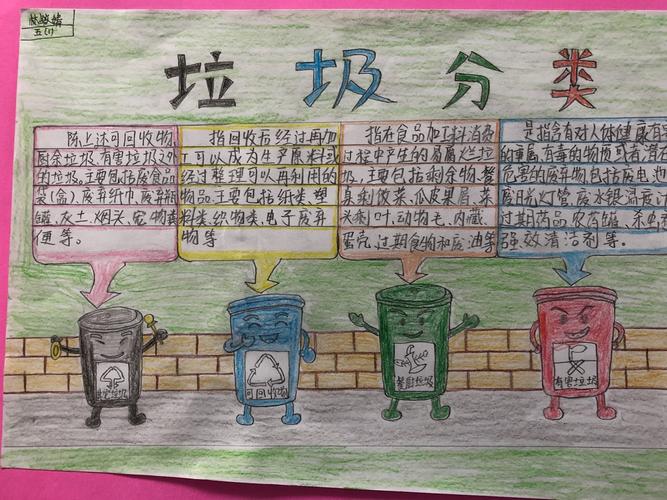 五(1)
垃圾分类
除上述可回收物、
厨余垃圾、有害垃圾之外
的垃圾。主要包括废食品
袋(盒)、废弃纸巾、废弃瓶
罐、灰土、烟头、宠物粪
便等。
指回收后经过再加
工可以成为生产原料或
经过整理可以再利用的
物品。主要包括纸类、塑
料类、织物类、电子废弃
物等
指在食品加工料消费
过程中产生的易腐烂垃
圾,主要包括剩余物、餐
具剩饭菜、瓜皮果屑、菜
头剩叶、动物毛、内臓、
蛋壳、过期食物和废油等
是指含有对人体健康有
的重属、有毒的物质或者潜在
危害的废弃物包括废电池
废日光灯管、废水银温度计
过期药品、农药罐、杀虫
强效清洁剂等。
垃圾
可回收物
餐厨垃圾
有害垃圾